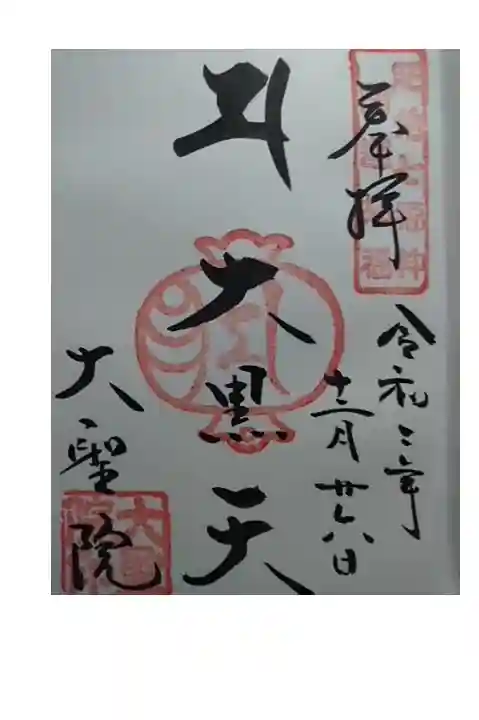 奉拝
令和二年
十二月廿六日
大黒天
大聖院